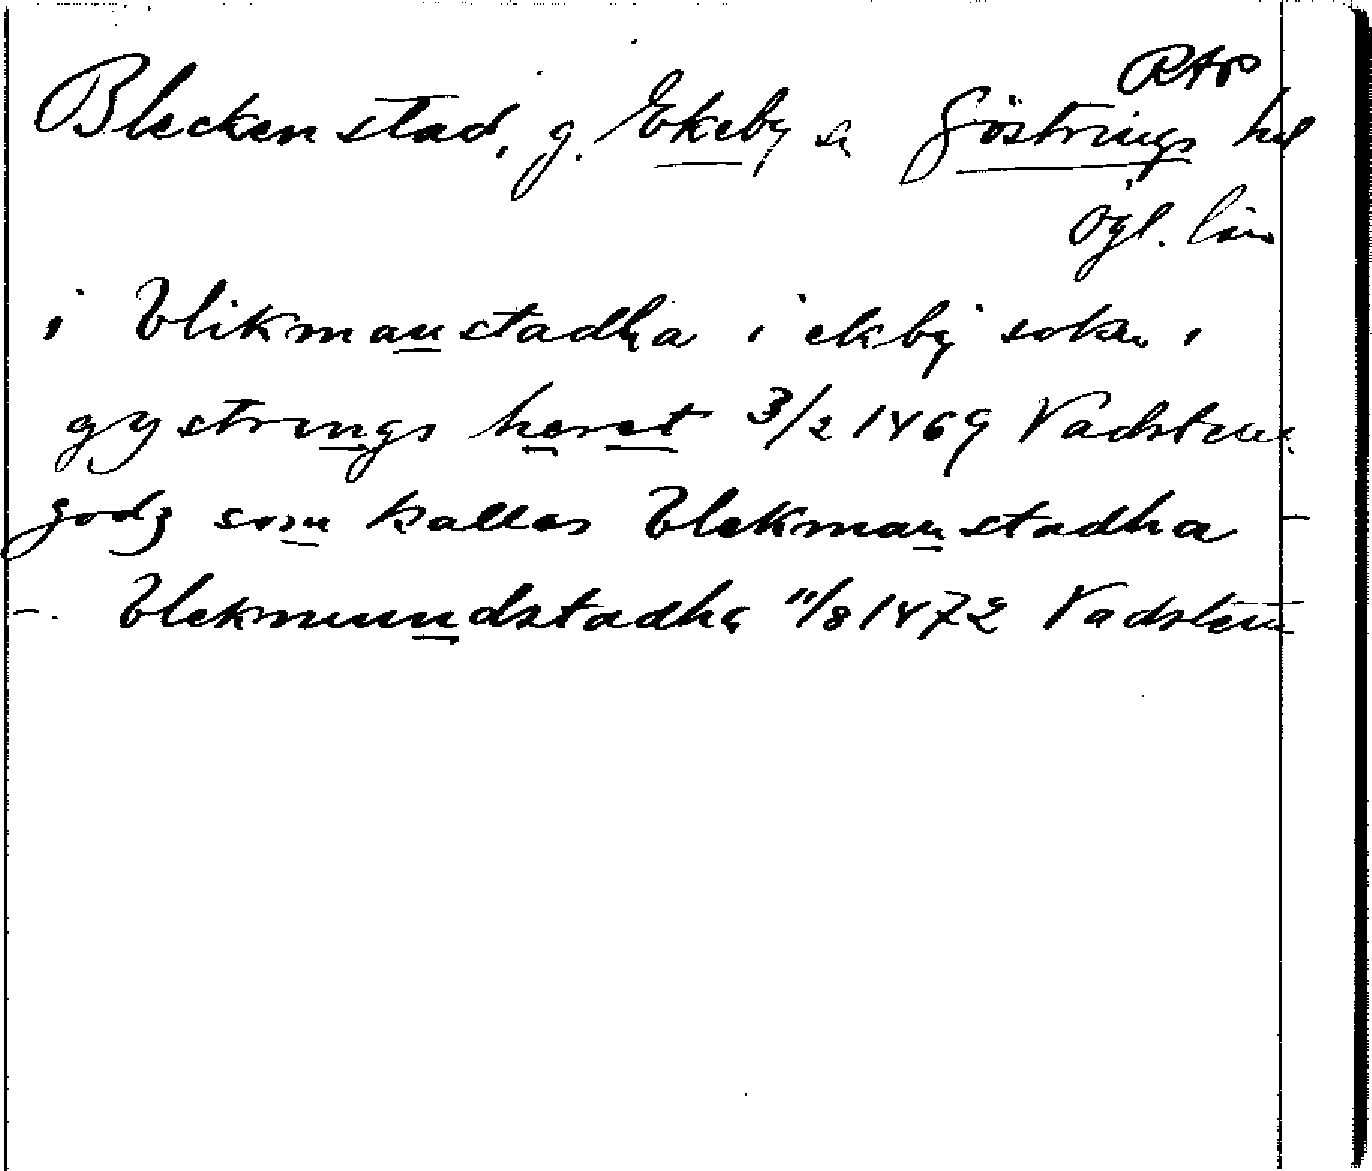 RAP
Bleckenstad, g. Ekeby sn Göstrings hd
Ögl. län
i blikmanstadha i ekby sokn i
gystrings heret 3/2 1469 Vadstena
godz som kallas blekmanstadha -
- blekmundstadha 11/8 1472 Vadstena